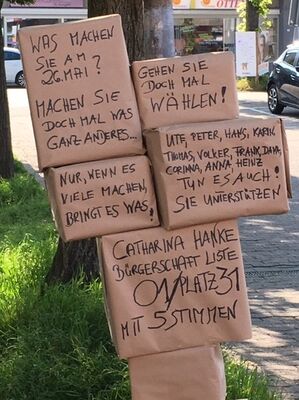 WAS MACHEN
SIE AM
26. MAI?
MACHEN SIE
DOCH MAL WAS
GANZ ANDERES...
GEHEN SIE
DOCH MAL
WÄHLEN!
NUR, WENN ES
VIELE MACHEN,
BRINGT ES WAS!
UTE, PETER, HANS, KARIN,
THOMAS, VOLKER, FRANK,
CORINNA, ANNA, HEINZ
TUN ES AUCH!
SIE UNTERSTÜTZEN
CATHARINA HANKE
BÜRGERSCHAFT LISTE
01/PLATZ 31
MIT 5 STIMMEN